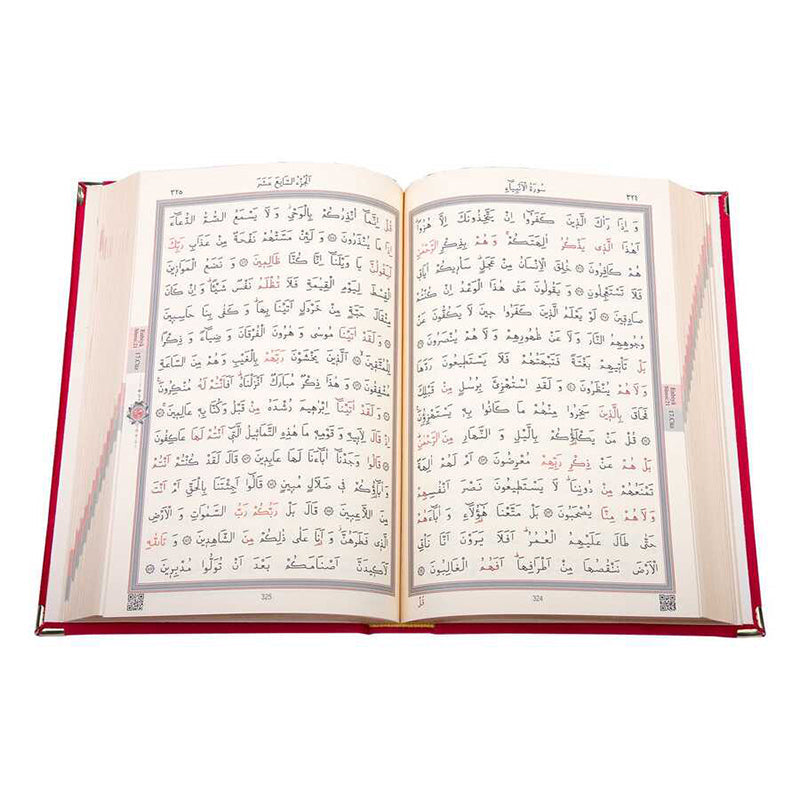 سُورَةُ الْاَنْبِيَاءِ
٣٢٤
وَ اِذَا رَاٰكَ الَّذِينَ كَفَرُوا اِنْ يَتَّخِذُونَكَ اِلَّا هُزُوًا
اَهٰذَا الَّذِي يَذْكُرُ اٰلِهَتَكُمْ وَ هُمْ بِذِكْرِ الرَّحْمٰنِ
هُمْ كَافِرُونَ ۝ خُلِقَ الْاِنْسَانُ مِنْ عَجَلٍ سَاُرِيكُمْ اٰيَاتِي
فَلَا تَسْتَعْجِلُونِ ۝ وَ يَقُولُونَ مَتٰى هٰذَا الْوَعْدُ اِنْ كُنْتُمْ
صَادِقِينَ ۝ لَوْ يَعْلَمُ الَّذِينَ كَفَرُوا حِينَ لَا يَكُفُّونَ عَنْ
وُجُوهِهِمُ النَّارَ وَ لَا عَنْ ظُهُورِهِمْ وَ لَا هُمْ يُنْصَرُونَ ۝
بَلْ تَأْتِيهِمْ بَغْتَةً فَتَبْهَتُهُمْ فَلَا يَسْتَطِيعُونَ رَدَّهَا
وَ لَا هُمْ يُنْظَرُونَ ۝ وَ لَقَدِ اسْتُهْزِئَ بِرُسُلٍ مِنْ قَبْلِكَ
فَحَاقَ بِالَّذِينَ سَخِرُوا مِنْهُمْ مَا كَانُوا بِهٖ يَسْتَهْزِؤُنَ
۝ قُلْ مَنْ يَكْلَؤُكُمْ بِالَّيْلِ وَ النَّهَارِ مِنَ الرَّحْمٰنِ
بَلْ هُمْ عَنْ ذِكْرِ رَبِّهِمْ مُعْرِضُونَ ۝ اَمْ لَهُمْ اٰلِهَةٌ
تَمْنَعُهُمْ مِنْ دُونِنَا لَا يَسْتَطِيعُونَ نَصْرَ اَنْفُسِهِمْ
وَ لَا هُمْ مِنَّا يُصْحَبُونَ ۝ بَلْ مَتَّعْنَا هٰؤُلَاءِ وَ اٰبَاءَهُمْ
حَتّٰى طَالَ عَلَيْهِمُ الْعُمُرُ اَفَلَا يَرَوْنَ اَنَّا نَأْتِي
الْاَرْضَ نَنْقُصُهَا مِنْ اَطْرَافِهَا اَفَهُمُ الْغَالِبُونَ ۝
قُلْ
324
اَلْجُزْءُ السَّابِعَ عَشَرَ
٣٢٥
قُلْ اِنَّمَا اُنْذِرُكُمْ بِالْوَحْيِ وَ لَا يَسْمَعُ الصُّمُّ الدُّعَاءَ
اِذَا مَا يُنْذَرُونَ ۝ وَ لَئِنْ مَسَّتْهُمْ نَفْحَةٌ مِنْ عَذَابِ رَبِّكَ
لَيَقُولُنَّ يَا وَيْلَنَا اِنَّا كُنَّا ظَالِمِينَ ۝ وَ نَضَعُ الْمَوَازِينَ
الْقِسْطَ لِيَوْمِ الْقِيٰمَةِ فَلَا تُظْلَمُ نَفْسٌ شَيْئًا وَ اِنْ كَانَ
مِثْقَالَ حَبَّةٍ مِنْ خَرْدَلٍ اَتَيْنَا بِهَا وَ كَفٰى بِنَا حَاسِبِينَ
۝ وَ لَقَدْ اٰتَيْنَا مُوسٰى وَ هٰرُونَ الْفُرْقَانَ وَ ضِيَاءً وَ ذِكْرًا
لِلْمُتَّقِينَ ۝ اَلَّذِينَ يَخْشَوْنَ رَبَّهُمْ بِالْغَيْبِ وَ هُمْ مِنَ السَّاعَةِ
مُشْفِقُونَ ۝ وَ هٰذَا ذِكْرٌ مُبَارَكٌ اَنْزَلْنَاهُ اَفَاَنْتُمْ لَهُ مُنْكِرُونَ
۝ وَ لَقَدْ اٰتَيْنَا اِبْرٰهِيمَ رُشْدَهُ مِنْ قَبْلُ وَ كُنَّا بِهٖ عَالِمِينَ ۝
اِذْ قَالَ لِاَبِيهِ وَ قَوْمِهٖ مَا هٰذِهِ التَّمَاثِيلُ الَّتِي اَنْتُمْ لَهَا عَاكِفُونَ
۝ قَالُوا وَجَدْنَا اٰبَاءَنَا لَهَا عَابِدِينَ ۝ قَالَ لَقَدْ كُنْتُمْ اَنْتُمْ
وَ اٰبَاؤُكُمْ فِي ضَلَالٍ مُبِينٍ ۝ قَالُوا اَجِئْتَنَا بِالْحَقِّ اَمْ اَنْتَ
مِنَ اللَّاعِبِينَ ۝ قَالَ بَلْ رَبُّكُمْ رَبُّ السَّمٰوَاتِ وَ الْاَرْضِ
الَّذِي فَطَرَهُنَّ وَ اَنَا عَلٰى ذٰلِكُمْ مِنَ الشَّاهِدِينَ ۝ وَ تَاللّٰهِ
لَاَكِيدَنَّ اَصْنَامَكُمْ بَعْدَ اَنْ تُوَلُّوا مُدْبِرِينَ ۝
325